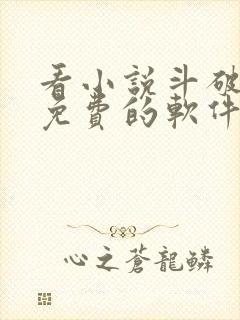 看小說斗破
免費的軟件
心之蒼龍鱗